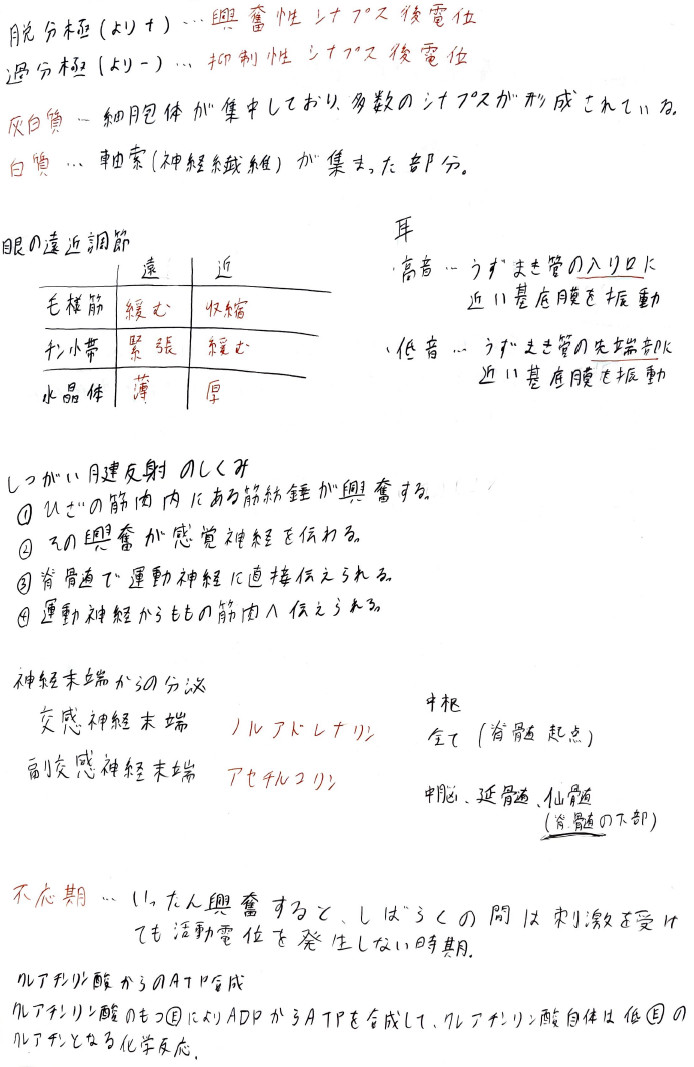 脱分極(より+)…興奮性シナプス後電位
過分極(より−)…抑制性シナプス後電位
灰白質…細胞体が集中しており、多数のシナプスが形成されている。
白質…軸索(神経繊維)が集まった部分。
眼の遠近調節
遠 近
毛様筋 緩む 収縮
チン小帯 緊張 緩む
水晶体 薄 厚
耳
・高音…うずまき管の入り口に
近い基底膜を振動
・低音…うずまき管の先端部に
近い基底膜を振動
しつがい腱反射のしくみ
① ひざの筋肉内にある筋紡錘が興奮する。
② その興奮が感覚神経を伝わる。
③ 脊髄で運動神経に直接伝えられる。
④ 運動神経からももの筋肉へ伝えられる。
神経末端からの分泌
交感神経末端 ノルアドレナリン
副交感神経末端 アセチルコリン
中枢
全て(脊髄起点)
中脳、延髄、仙髄
(脊髄の下部)
不応期…いったん興奮すると、しばらくの間は刺激を受け
ても活動電位を発生しない時期.
クレアチンリン酸からのATP合成
クレアチンリン酸のもつⒺによりADPからATPを合成して、クレアチンリン酸自体は低Ⓔの
クレアチンとなる化学反応.